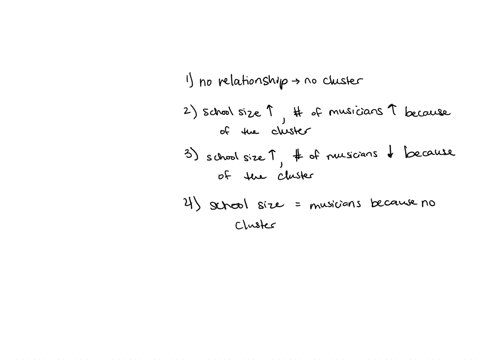 1) no relationship → no cluster
2) school size ↑, # of musicians ↑ because
of the cluster
3) school size ↑, # of musicians ↓ because
of the cluster
4) school size = musicians because no
cluster